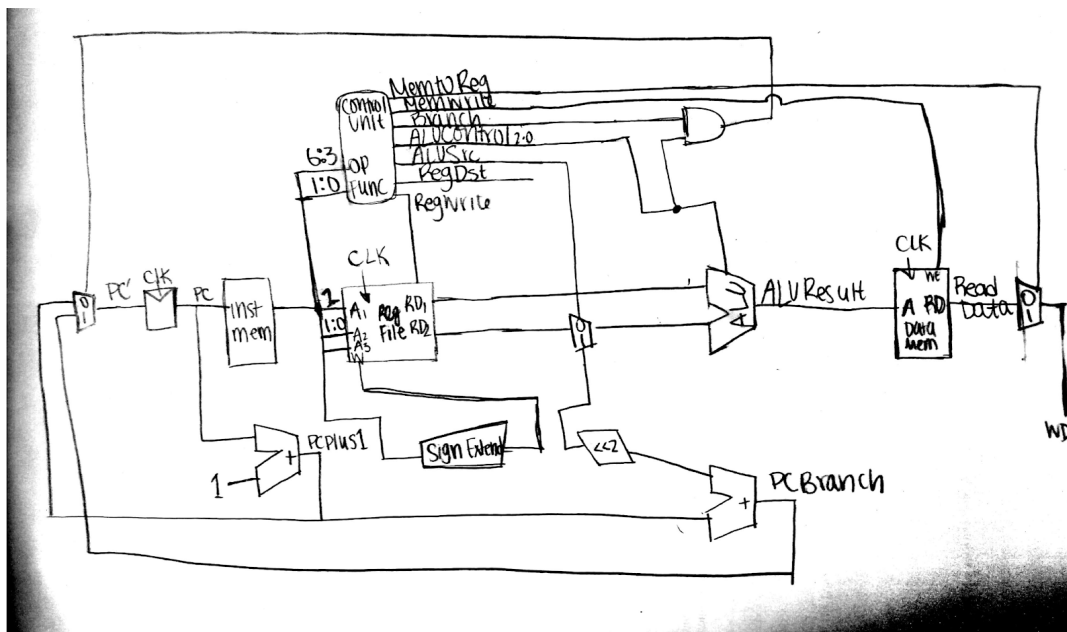 MemtoReg
MemWrite
Branch
ALUControl2:0
ALUSrc
RegDst
RegWrite
Control
Unit
6:3
OP
1:0
Func
CLK
PC'
CLK
PC
Inst
mem
1:0
A1
A2
A3
W
Reg
File
RD1
RD2
0
1
0
1
ALU
ALUResult
CLK
WE
A RD
Data
Mem
Read
Data
0
1
WD
PCPlus1
1
+
Sign Extend
<<2
+
PCBranch